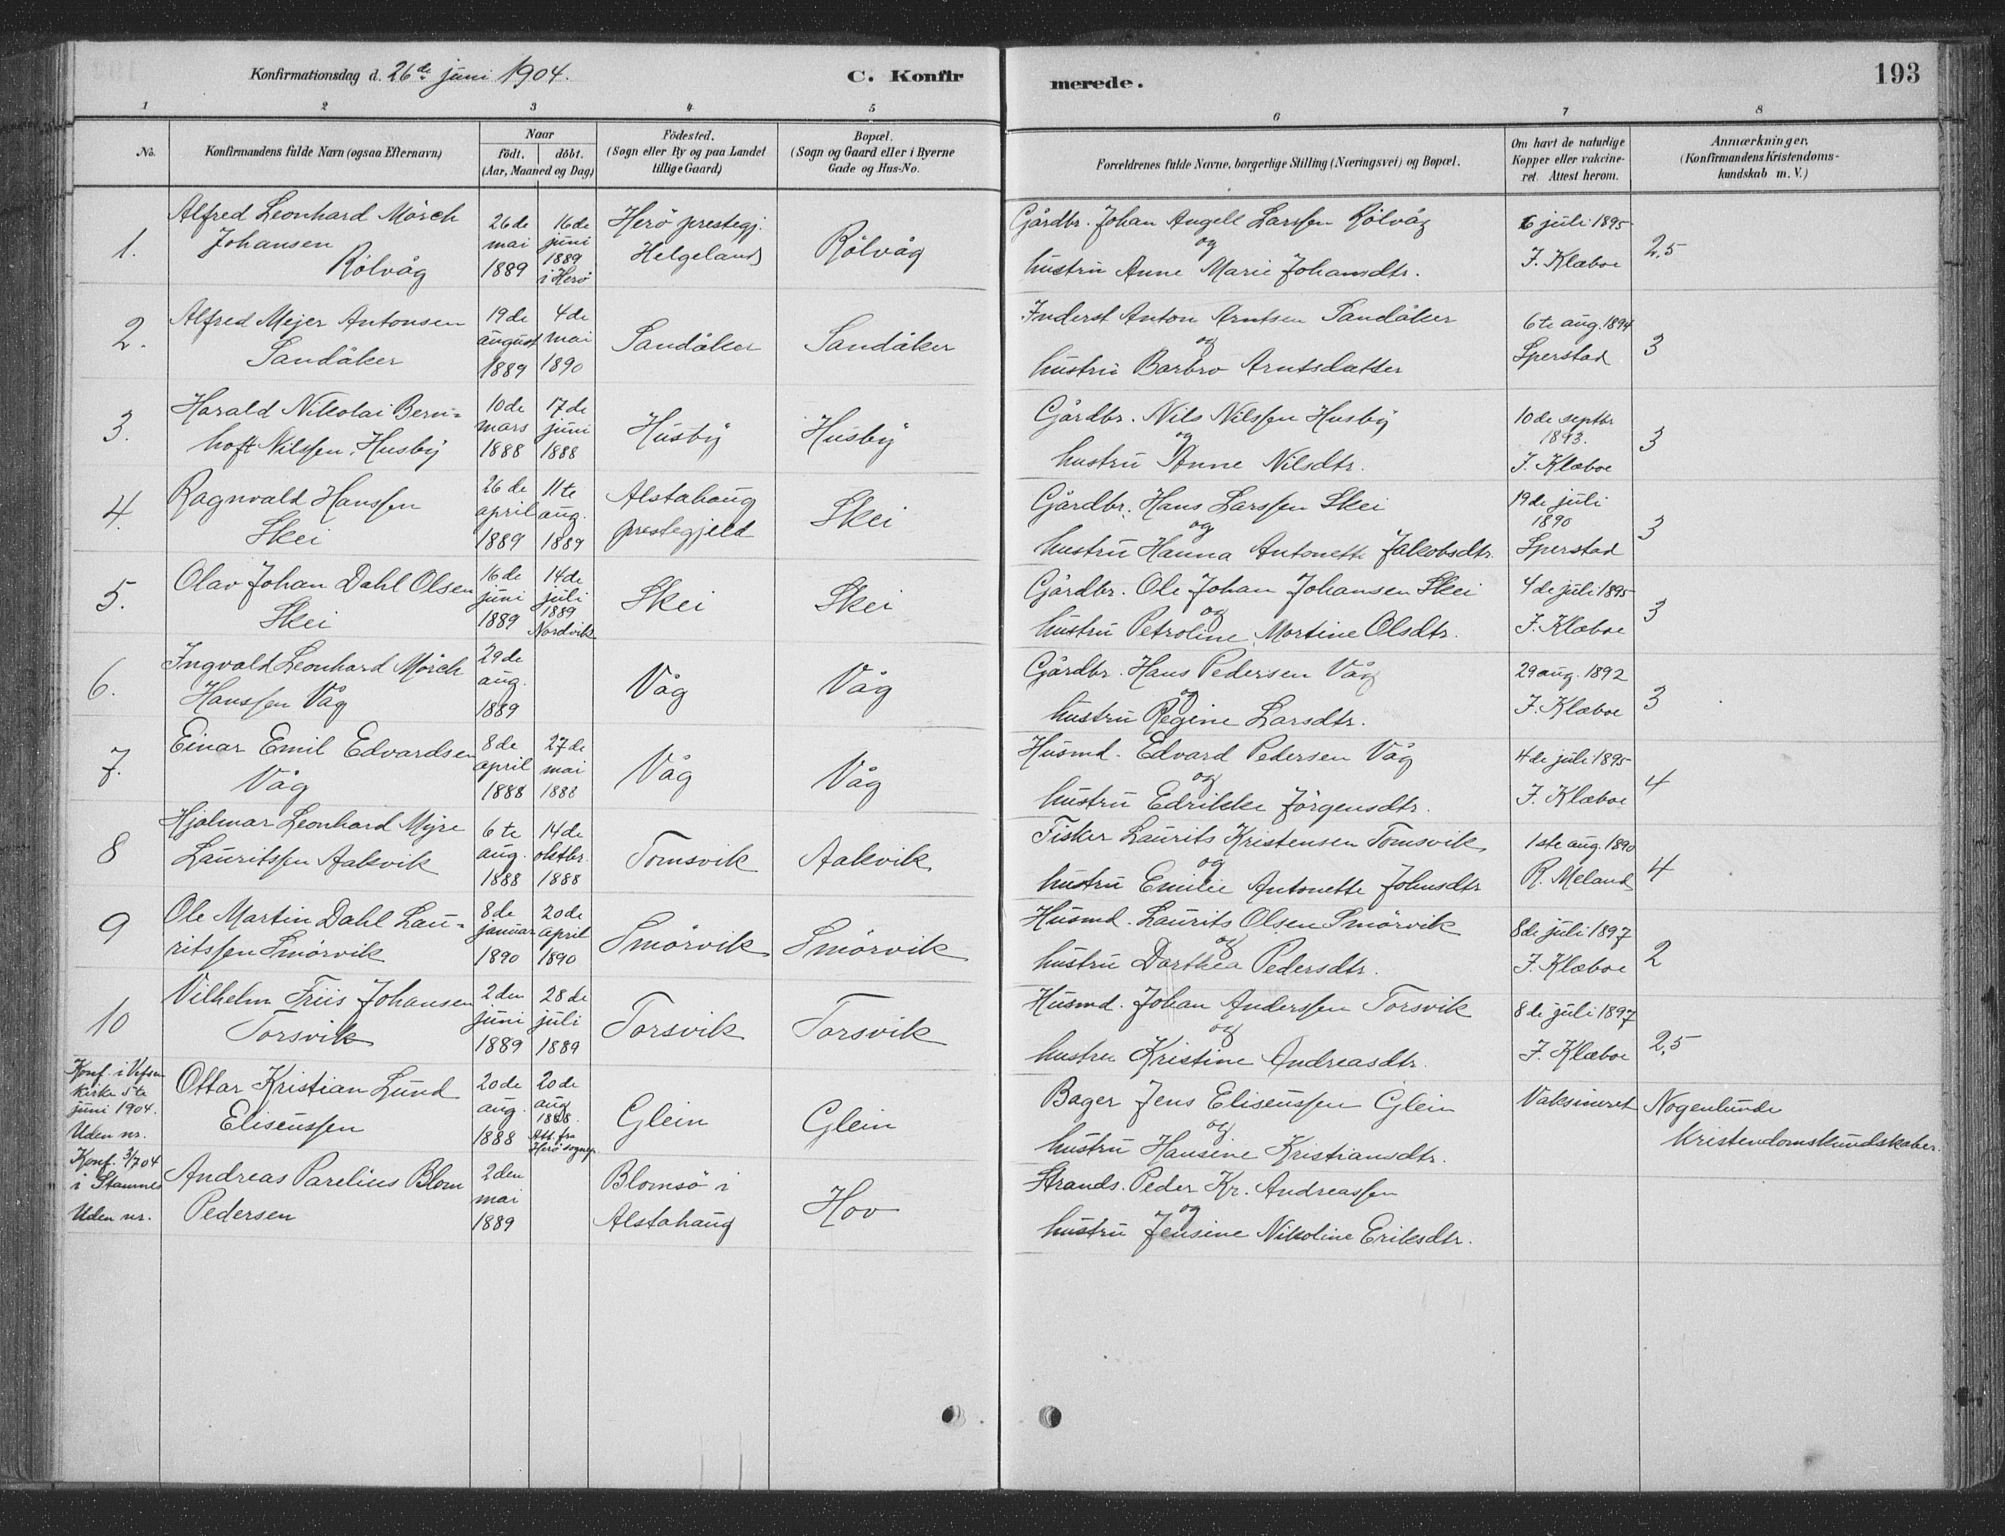 Konfirmationsdag d. 26de juni 1904.
C. Konfirmerede.
193
1 2 3 4 5 6 7 8
No.
Konfirmandens fulde Navn (ogsaa Efternavn)
Naar
födt. döbt.
(Aar, Maaned og Dag)
Födested.
(Sogn eller By og paa Landet
tillige Gaard)
Bopæl.
(Sogn og Gaard eller i Byerne
Gade og Hus-No.
Forældrenes fulde Navne, borgerlige Stilling (Næringsvei) og Bopæl.
Om havt de naturlige
Kopper eller vakcine-
ret. Attest herom.
Anmærkninger.
(Konfirmandens Kristendoms-
kundskab m. V.)
1.
Alfred Leonhard Mörch
Johansen
Rölvåg
26de
mai
1889
16de
juni
1889
i Herö
Herö prestegj.
Helgeland
Rölvåg
Gårdbr. Johan Angell Larssen Rölvåg
og
hustru Anne Marie Johansdtr.
6 juli 1895
J. Klæboe
2,5
2.
Alfred Mejer Antonsen
Sandåker
19de
august
1889
4de
mai
1890
Sandåker
Sandåker
Inderst Anton Arntsen Sandåker
og
hustru Barbro Arntsdatter
6te aug. 1894
Sperstad
3
3.
Harald Nikolai Bern=
hoft Nilssen, Husby
10de
mars
1888
17de
juni
1888
Husby
Husby
Gårdbr. Nils Nilssen Husby
og
hustru Anne Nilsdtr.
10de septbr
1893.
J. Klæboe
3
4.
Ragnvald Hanssen
Skei
26de
april
1889
11te
aug.
1889
Alstahaug
prestegjeld
Skei
Gårdbr. Hans Larssen Skei
og
hustru Hanna Antonette Jakobsdtr.
19de juli
1890
Sperstad
3
5.
Olav Johan Dahl Olsen
Skei
16de
juni
1889
14de
juli
1889
Nordvik
Skei
Skei
Gårdbr. Ole Johan Johansen Skei
og
hustru Petroline Martine Olsdtr.
4de juli 1895
J. Klæboe
3
6.
Ingvald Leonhard Mörch
Hanssen Våg
29de
aug.
1889
Våg
Våg
Gårdbr. Hans Pedersen Våg
og
hustru Regine Larsdtr.
29 aug. 1892
J. Klæboe
3
7.
Einar Emil Edvardsen
Våg
8de
april
1888
27de
mai
1888
Våg
Våg
Husmd. Edvard Pedersen Våg
og
hustru Edrikke Jörgensdtr.
4de juli 1895
J. Klæboe
4
8
Hjalmar Leonhard Myre
Lauritssen Aakvik
6te
aug.
1888
14de
oktbr.
1888
Tomsvik
Aakvik
Fisker Laurits Kristensen Tomsvik
og
hustru Emilie Antonette Johnsdtr
1ste aug. 1890
R. Meland
4
9
Ole Martin Dahl Lau=
ritssen Smörvik
8de
januar
1890
20de
april
1890
Smörvik
Smörvik
Husmd. Laurits Olsen Smörvik
og
hustru Dorthea Pedersdtr.
8de juli 1897
J. Klæboe
2
10
Vilhelm Friis Johansen
Torsvik
2den
juni
1889
28de
juli
1889
Torsvik
Torsvik
Husmd. Johan Anderssen Torsvik
og
hustru Kristine Andreasdtr.
8de juli 1897
J. Klæboe
2,5
Konf. i Vefsn
kirke 5te
juni 1904.
Uden nr.
Ottar Kristian Lund
Eliseussen
20de
aug.
1888
20de
aug
1888.
Att. fra
Herö sognep.
Glein
Glein
Bager Jens Eliseussen Glein
og
hustru Hansine Kristiansdtr.
Vaksineret
Nogenlunde
Kristendomskundskaber.
Konf. 3/7 04
i Stamnes
Uden nr.
Andreas Parelius Blom
Pedersen
2den
mai
1889
Blomsö i
Alstahaug
Hov
Strands. Peder Kr. Andreassen
og
hustru Jensine Nikoline Eriksdtr.